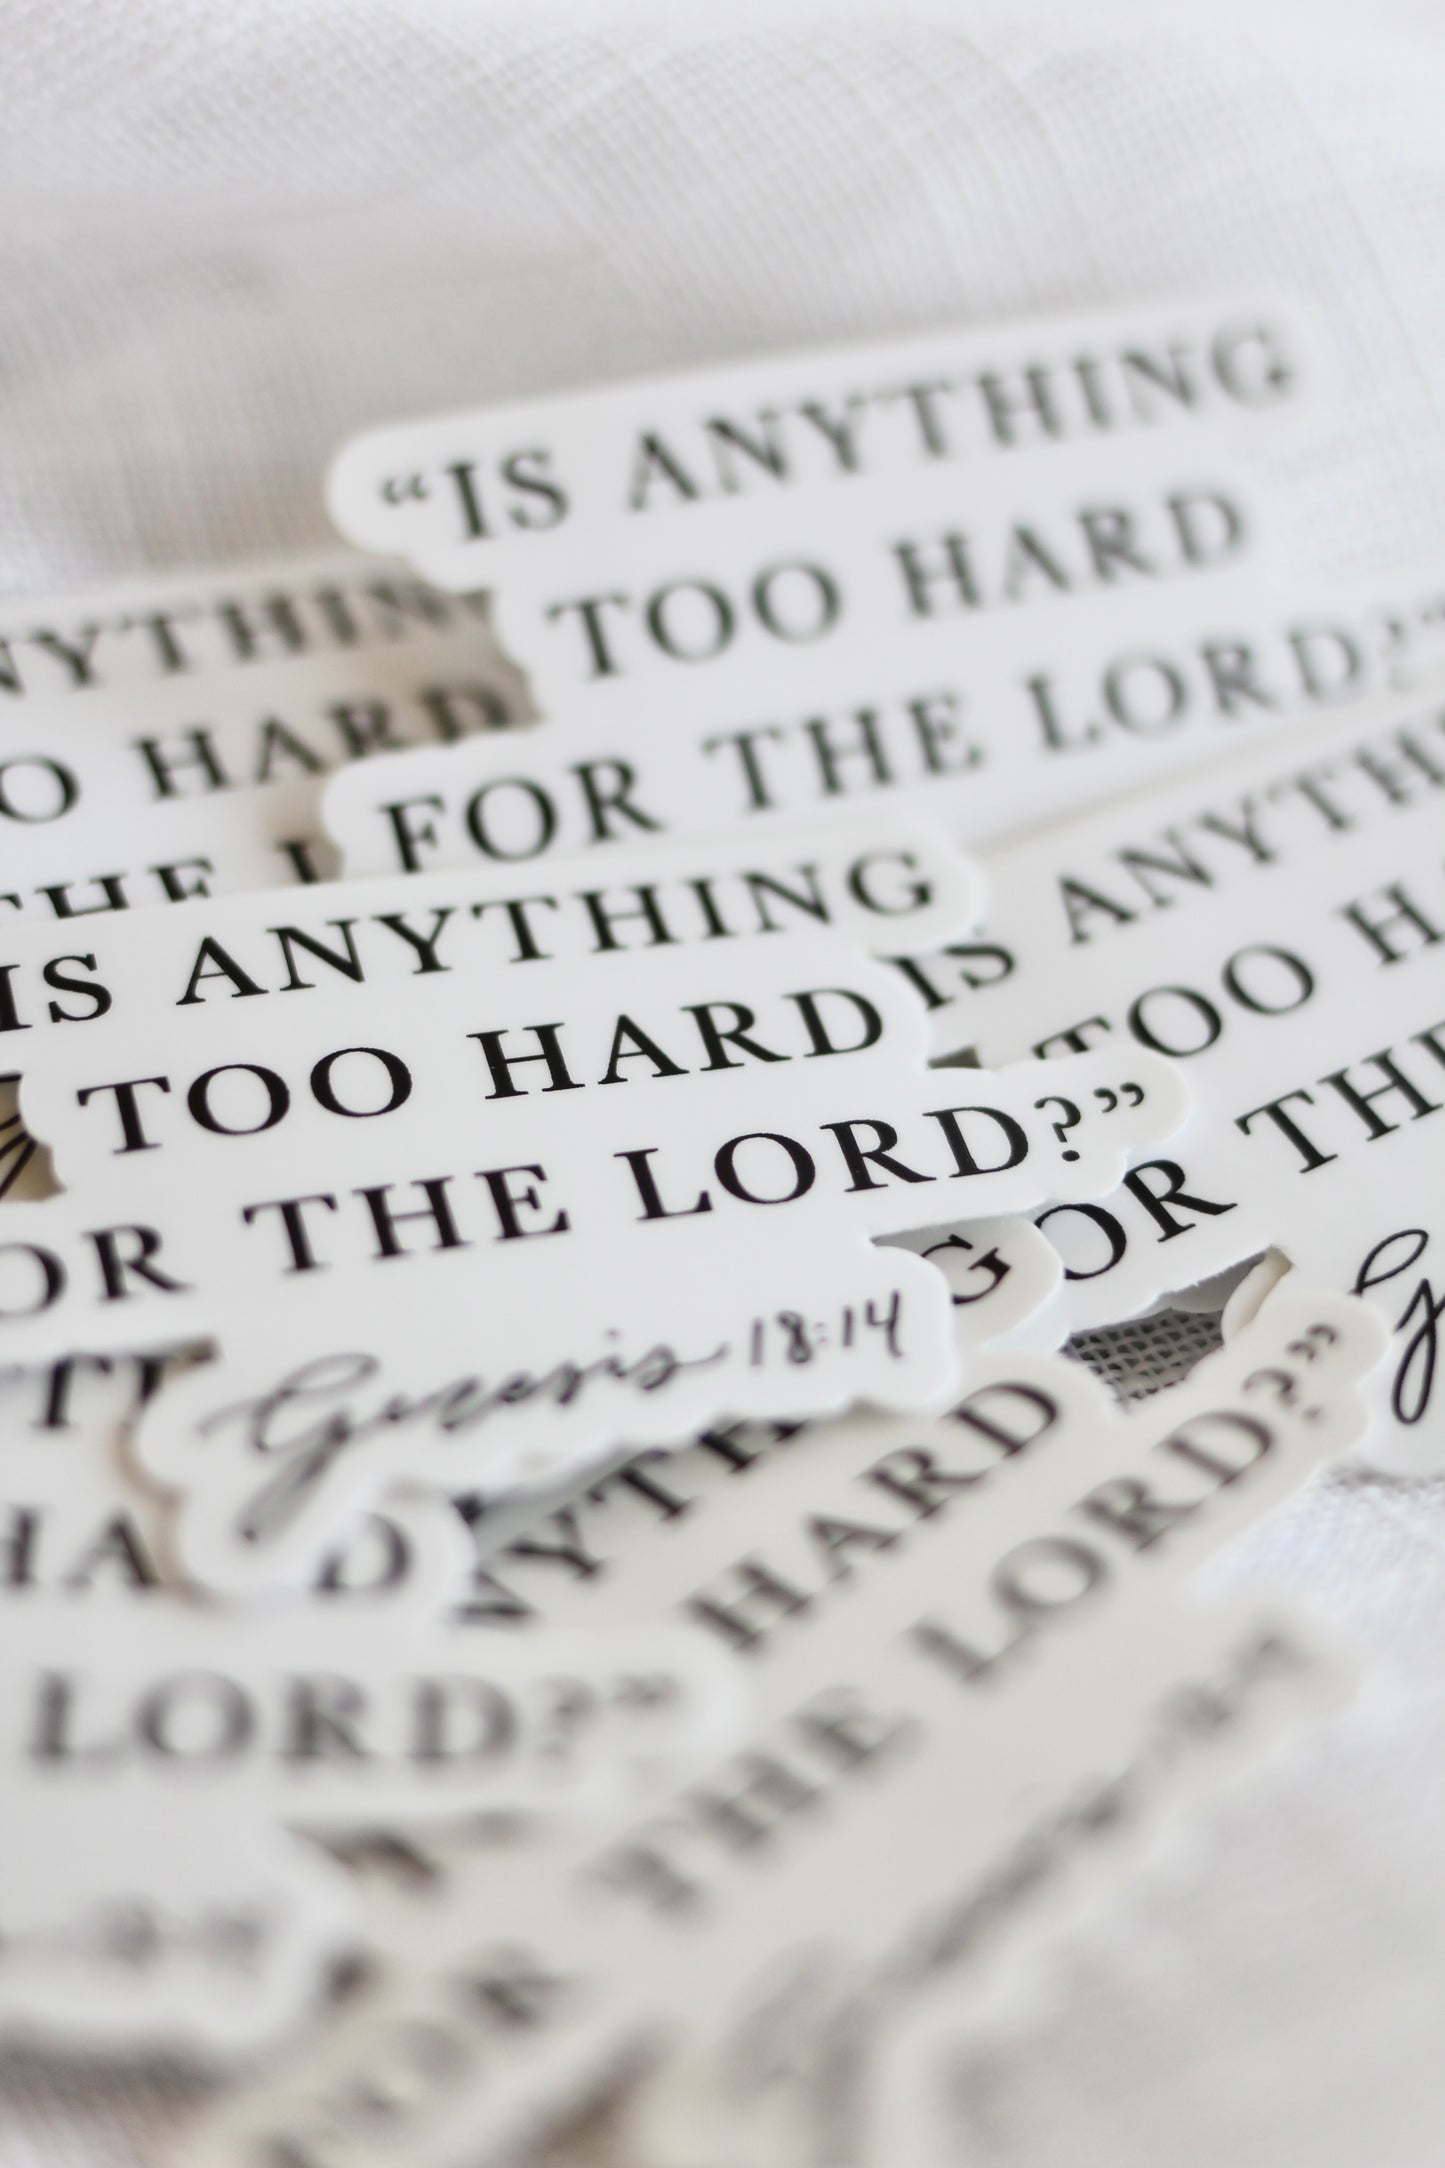 “IS ANYTHING
TOO HARD
FOR THE LORD?”
NYTHING
O HARD
THE L
IS ANYTHING
TOO HARD
OR THE LORD?”
Genesis 18:14
IS ANYTH
TOO HA
OR THE
G
G
HA D
LORD?”
NYTH
HARD
THE LORD?”